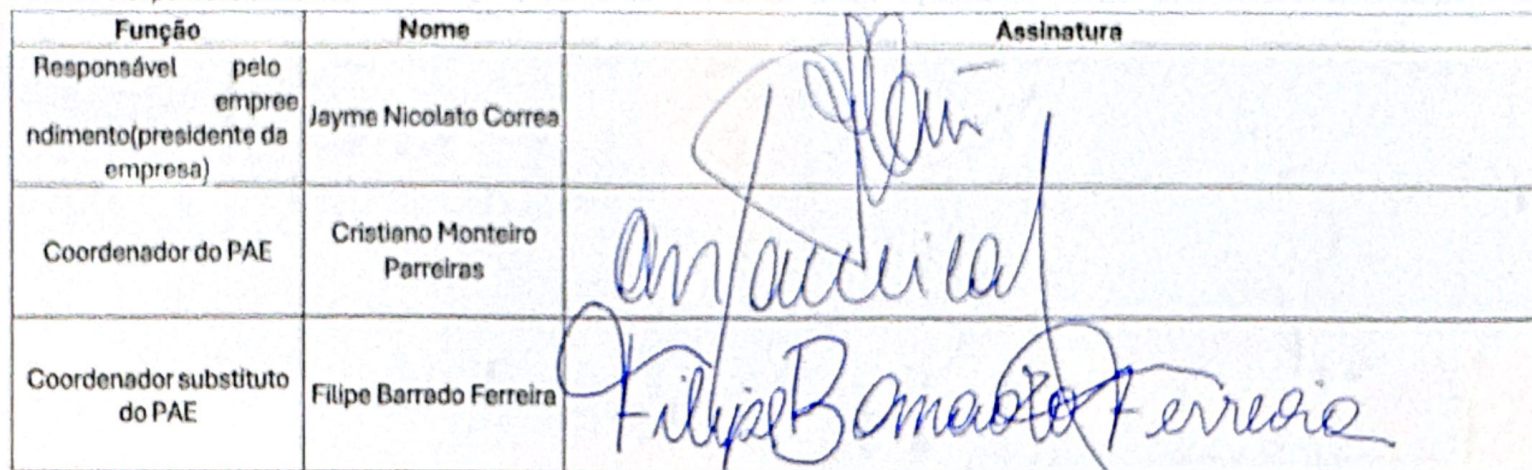 Função Nome Assinatura
Responsável pelo
empree
ndimento(presidente da
empresa)
Jayme Nicolato Correa
Coordenador do PAE
Cristiano Monteiro
Parreiras
Coordenador substituto
do PAE
Filipe Barrado Ferreira
Filipe Barrado Ferreira